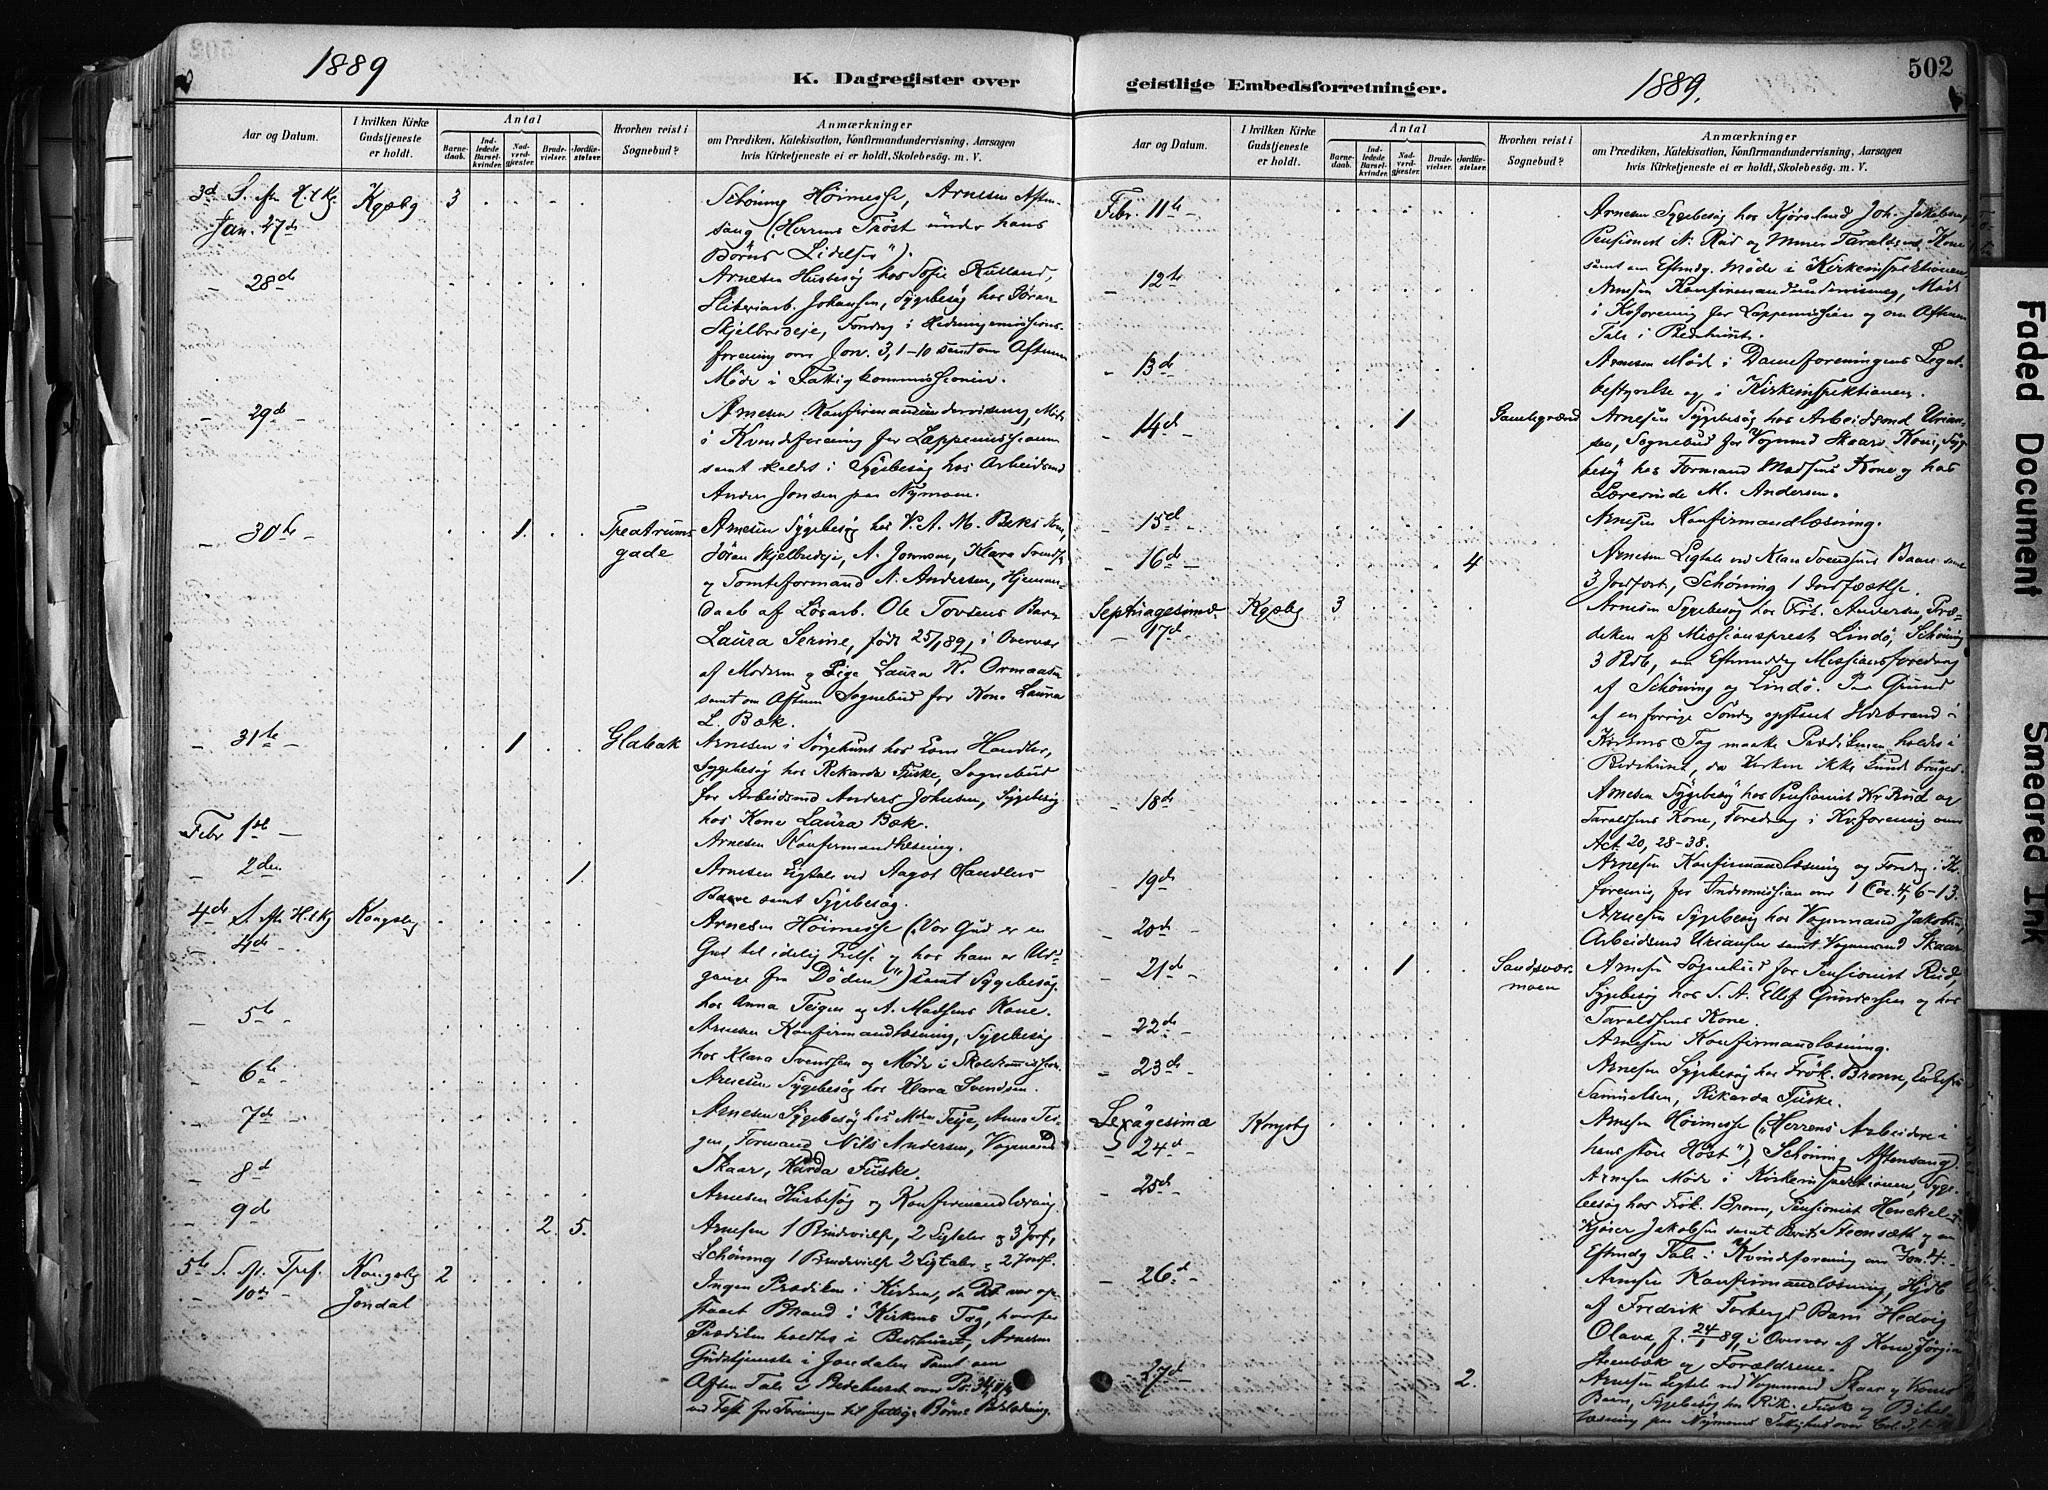 1889
K. Dagregister over
geistlige Embedsforretninger.
1889.
502
Aar og Datum.
I hvilken Kirke Gudstjeneste er holdt.
Antal
Barnedaab.
Indledede Barselkvinder.
Nadverdgjester.
Brudevielser.
Jordfæstelser.
Hvorhen reist i Sognebud?
Anmærkninger
om Prædiken, Katekisation, Konfirmandundervisning, Aarsagen
hvis Kirketjeneste ei er holdt, Skolebesøg. m. V.
3d S. efter H.t.Kg. Kgsbg 3 Schöning Höimesse, Arnesen Aften-
Jan. 27de sang ("Herrens Tröst under hans
Börns Lidelser").
- 28de Arnesen Husbesög hos Sofie Rusland,
Sliberiarb. Johansen, Sygebesög hos Göran
Skjelbredeje, Foredrag i Hedningemissions-
forening over Joh. 3, 1-10 samt om Aftenen
Möde i Fattigkommissionen.
- 29de Arnesen Konfirmandundervisning, Möde
i Kvindeforening for Lappemissionen
samt i Sygebesög hos Arbeidsmd
Anders Jonsen paa Nymoen.
- 30te - 1. Theatrums Arnesen Sygebesög hos V. A. M. Beks
gade Göran Skjelbredeje, A. Jonnson, Klara Svendsen
og Tomteformand N. Andersen, Hjemme-
daab af Lösarb. Ole Tovsens Barn
Laura Serine, född 25/1 89, i Overvær
af Moderen og Pige Laura N. Ormaasen
samt om Aftenen Sognebud for Kone Laura
L. Bæk.
- 31te - 1 Glabak Arnesen i Sörgehuset hos Handler,
Sygebesög hos Rikarda Fuske, Sognebud
for Arbeidsmd Anders Johnsen, Sygebesög
hos Kone Laura Bæk.
Febr 1ste - Arnesen Konfirmandlæsning.
- 2den 1. Arnesen Ligtale ved Aagot Handlers
Barn samt Sygebesög.
4de S. efter H.t.Kg Kongsbg Arnesen Höimesse ("Vor Gud er en
4de - Gud til idelig Frelse og hos ham er Ud-
gange fra Döden") samt Sygebesög
hos Anna Teigen og A. Madsens Kone.
- 5te - Arnesen Konfirmandlæsning, Sygebesög
hos Klara Svendsen og Möde i Skolekommissionen.
- 6te Arnesen Sygebesög hos Klara Svendsen.
- 7de Arnesen Sygebesög hos Anna Tei-
gen, Formand Nils Andersen, Vognmand
Skaar, Fuske.
- 8d Arnesen Husbesög og Konfirmandlæsning
- 9de 2. 5. Arnesen 1 Brudevielse, 2 Ligtaler og 3 Jordf.,
Schöning 1 Brudevielse 2 Ligtaler og 2 Jordf.
5te S. efter Kongsbg 2 Ingen Prædiken i Kirken, da der var op-
- 10de - Jondal staaet Brand i Kirkens Tag, hvorfor
Prædiken holdtes i Bedehuset, Arnesen
Gudstjeneste i Jondalen samt om
Aften Tale i Bedehuset over
ved Fest for Foreningen til fattige Börns Beklædning.
Aar og Datum.
I hvilken Kirke Gudstjeneste er holdt.
Antal
Barnedaab.
Indledede Barselkvinder.
Nadverdgjester.
Brudevielser.
Jordfæstelser.
Hvorhen reist i Sognebud?
Anmærkninger
om Prædiken, Katekisation, Konfirmandundervisning, Aarsagen
hvis Kirketjeneste ei er holdt, Skolebesøg. m. V.
Febr. 11te - Arnesen Sygebesög hos Joh. Jakobsen,
Pensionist N. Rud og Taraldsens Kone
samt om Eftmdg. Möde i Kirkeinspektionen.
- 12te Arnesen Konfirmandundervisning, Möde
i Kvforening for Lappemission og om Aftenen
Tale i Bedehuset.
- 13de Arnesen Möde i Dameforeningens Legat-
bestyrelse og i Kirkeinspektionen.
- 14de - 1 Gamlegrænd Arnesen Sygebesög hos Arbeidsmd Urian-
sen, Sognebud for Vognmd Skaars Kone, Syge-
besög hos Formand Madsens Kone og hos
Lærerinde M. Andersen.
- 15de - Arnesen Konfirmandlæsning.
- 16de - 4 Arnesen Ligtale ved Klara Svendsens Baare samt
3 Jordfæst., Schöning 1 Jordfæstelse.
Septuagesimæ Kgsbg 3 Arnesen Sygebesög hos Frk. Andersen, Præ-
- 17d diken af Missionsprest Lindö, Schöning
3 Bdb, om Eftermiddag Missionsforedrag
af Schöning og Lindö. Paa Grund
af en forrige Söndag opstaaet Ildebrand i
Kirkens Tag maatte Prædikenen holdes i
Bedehuset, da Kirken ikke kunde bruges.
- 18de Arnesen Sygebesög hos Pensionist Rud og
Taraldsens Kone, Foredrag i Kvforening over
Act. 20, 28-38.
- 19de Arnesen Konfirmandlæsning og Foredrag i Kv.
forening for Indremission over 1 Cor. 4, 6-13.
- 20de Arnesen Sygebesög hos Vognmand Jakobsen,
Arbeidsmd Uriansen samt Vognmand Skaar
- 21de - 1 Sandsvær- Arnesen Sognebud for Pensionist Rud,
moen Sygebesög hos S. A. Ellef Gundersen og hos
Taraldsens Kone.
- 22de - Arnesen Konfirmandlæsning.
- 23de - Arnesen Sygebesög hos Frök. Bronn,
Samuelsen, Rikarda Fuske.
Sexagesimæ Kongsbg Arnesen Höimesse ("Herrens Arbeidere i
- 24de - hans store Höst"), Schöning Aftensang.
- 25de - Arnesen Möde i Kirkeinspektionen, Syge-
besög hos Frök. Bronn, Pensionist Henckel,
Kjörer Jakobsen samt Berit Steensæth og om
Eftmdg Tale i Kvindeforening over Joh. 4.
- 26.de - Arnesen Konfirmandlæsning, Hjdb
af Fredrik Torbergs Barn Hedvig
Olava, f. 24/1 89, i Overvær af Kone Jörgine
Steenbæk og Forældrene.
- 27de - 2. Arnesen Ligtale ved Vognmand Skaars Kones
Baare, Sygebesög hos Rik. Fuske og Bibel-
læsning paa Nymoens Fattighus over
Faded Document
Smeared Ink